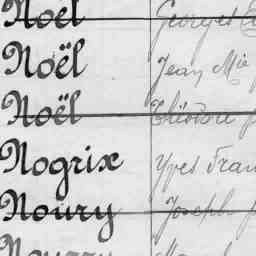 Noël Georges
Noël Jean Mie
Noël Théodore
Nogrix Yves Fran
Noury Joseph